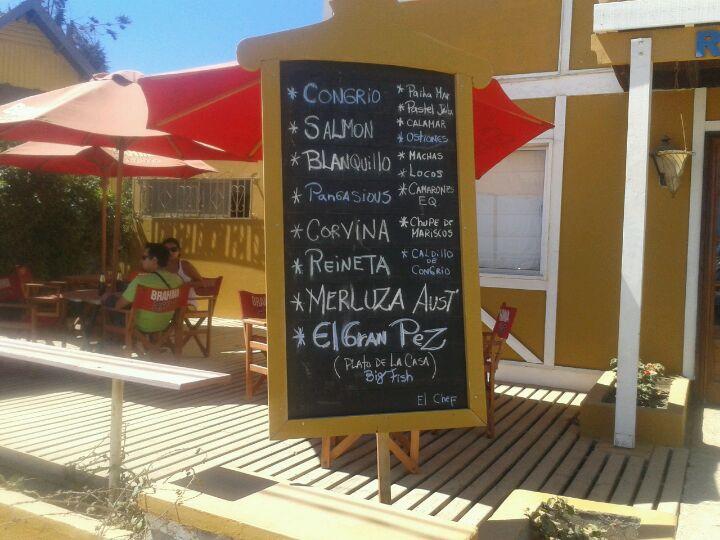 * CONGRIO
* SALMON
* BLANQUILLO
* PANGASIOUS
* CORVINA
* REINETA
* MERLUZA AUST
* El Gran Pez
(PLATO DE LA CASA)
Big Fish
* PAILA MAR
* PASTEL
* CALAMAR
* OSTIONES
* MACHAS
* LOCOS
* CAMARONES
EQ
* CHUPE DE
MARISCOS
* CALDILLO
DE
CONGRIO
El Chef
BRAHMA
R